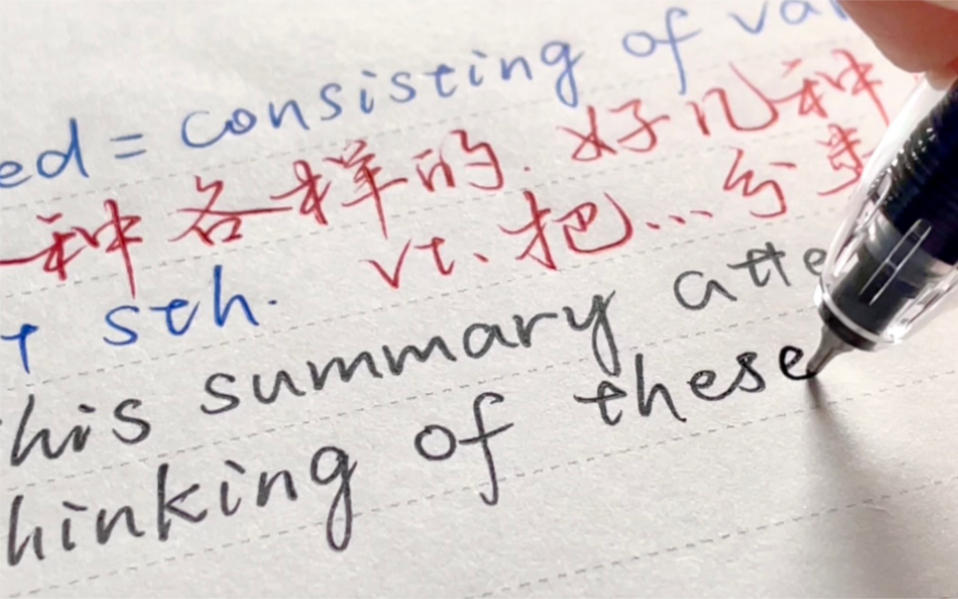 ed = consisting of va
种各样的. 好几种
+ sth. vt. 把... 分类
his summary atte
hinking of these